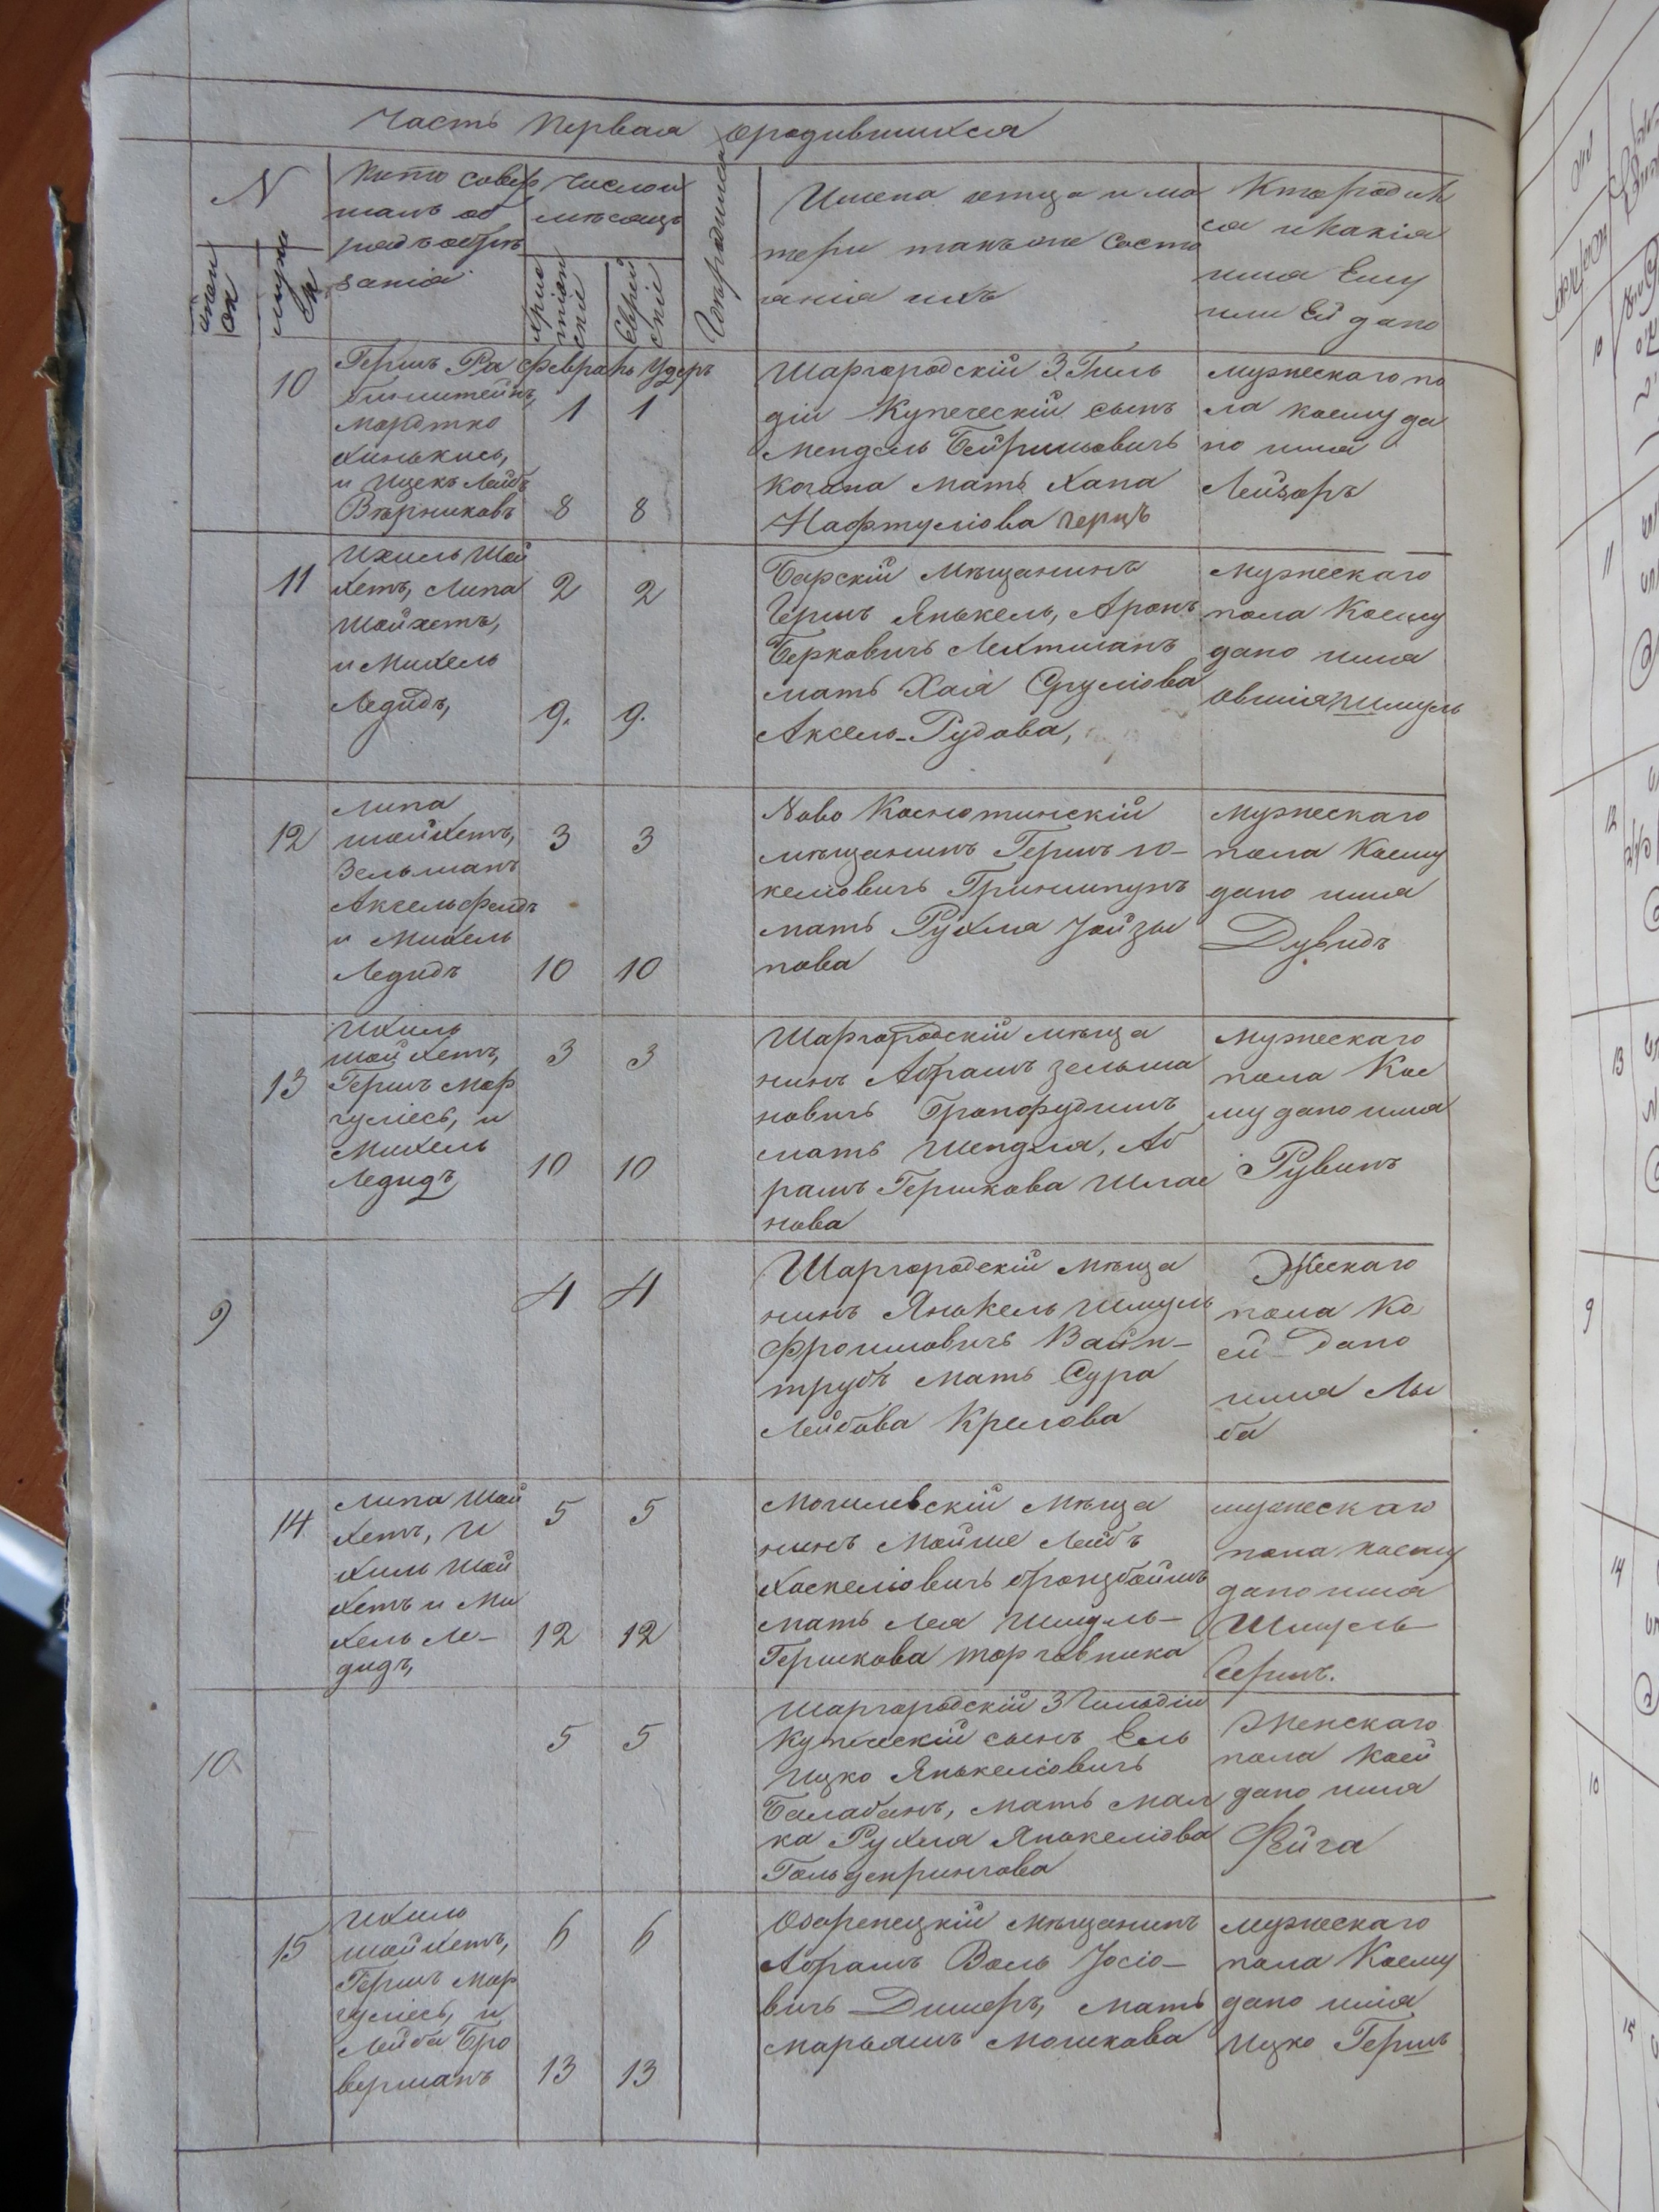 Часть Первая Ородившихся
N
Женск
Мужеск
Кто совер
шалъ об
рядъ обрѣ
занія
Число и
мѣсяцъ
Хрис
тіан
скій
Еврей
скій
Гдѣ родился
Имена отца и ма
тери также состо
янія ихъ
Кто родил
ся и какія
имя Ему
или Ей дано
10
Гершъ Ра
бинштейнъ,
Мордтко
Хинькись,
и Ицекъ Лейбъ
Вѣрниковъ
Февраль Удеръ
1 1
8 8
Шаргородскій 3 Гиль
діи Купеческій сынъ
Мендель Бейришовичъ
Когана Мать Хана
Нафтуліова Герцъ
Мужескаго по
ла коему да
но имя
Лейзоръ
11
Ихиль Шой
хетъ, Липа
Шойхетъ,
и Михель
Ледидъ,
2 2
9. 9.
Барскій Мѣщанинъ
Гершъ Янькель, Аронъ
Берковичъ Лехтманъ
мать Хая Сруліова
Аксель-Рудова,
Мужескаго
пола Коему
дано имя
Овшія Шмуль
12
Липа
шойхетъ,
Зельманъ
Аксельфелдъ
и Михель
Ледидъ
3 3
10 10
Ново Коснютинскій
мѣщанинъ Гершъ Ю-
келіовичъ Гриншпунъ
мать Рухля Іойзы
пова
Мужескаго
пола Коему
дано имя
Дувидъ
13
Ихиль
шойхетъ,
Гершъ Мар
гуліесъ, и
Михель
Ледидъ
3 3
10 10
Шаргородскій мѣща
нинъ Абрамъ зельма
новичъ
мать Шендля, Аб
рамъ Гершкова Шлае
нова
Мужескаго
пола Кое
му дано имя
Рувинъ
9
4 4
Шаргородскій мѣща
нинъ Янькель Шмуль
Фроимовичъ Вайн-
трубъ Мать Сура
Лейбова Крелова
Жескаго
пола Ко
ей дано
имя Лы
ба
14
Липа Шой
хетъ, И
хиль Шой
хетъ и Ми
хель Ле-
дидъ,
5 5
12 12
Могилевскій Мѣща
нинъ Мойше Лейбъ
Хаскеліовичъ
мать Лея Шмуль-
Гершкова торговника
мужескаго
пола коему
дано имя
Шмуль
Гершъ.
10
5 5
Шаргородскій 3 Гильдіи
Купческій сынъ Ель
Ицко Янькеліовичъ
Балабанъ, мать Мал
ка Рухля Янькеліова
Гольденрингова
Женскаго
пола коей
дано имя
Фейга
15
Ихиль
шойхетъ,
Гершъ Мар
гуліесъ, и
Лейба Бро
верманъ
6 6
13 13
Озаренецкій мѣщанинъ
Абрамъ Воль Іосіо-
вичъ Дишеръ, мать
Марьямъ Мошкова
Мужескаго
пола Коему
дано имя
Ицко Гершъ